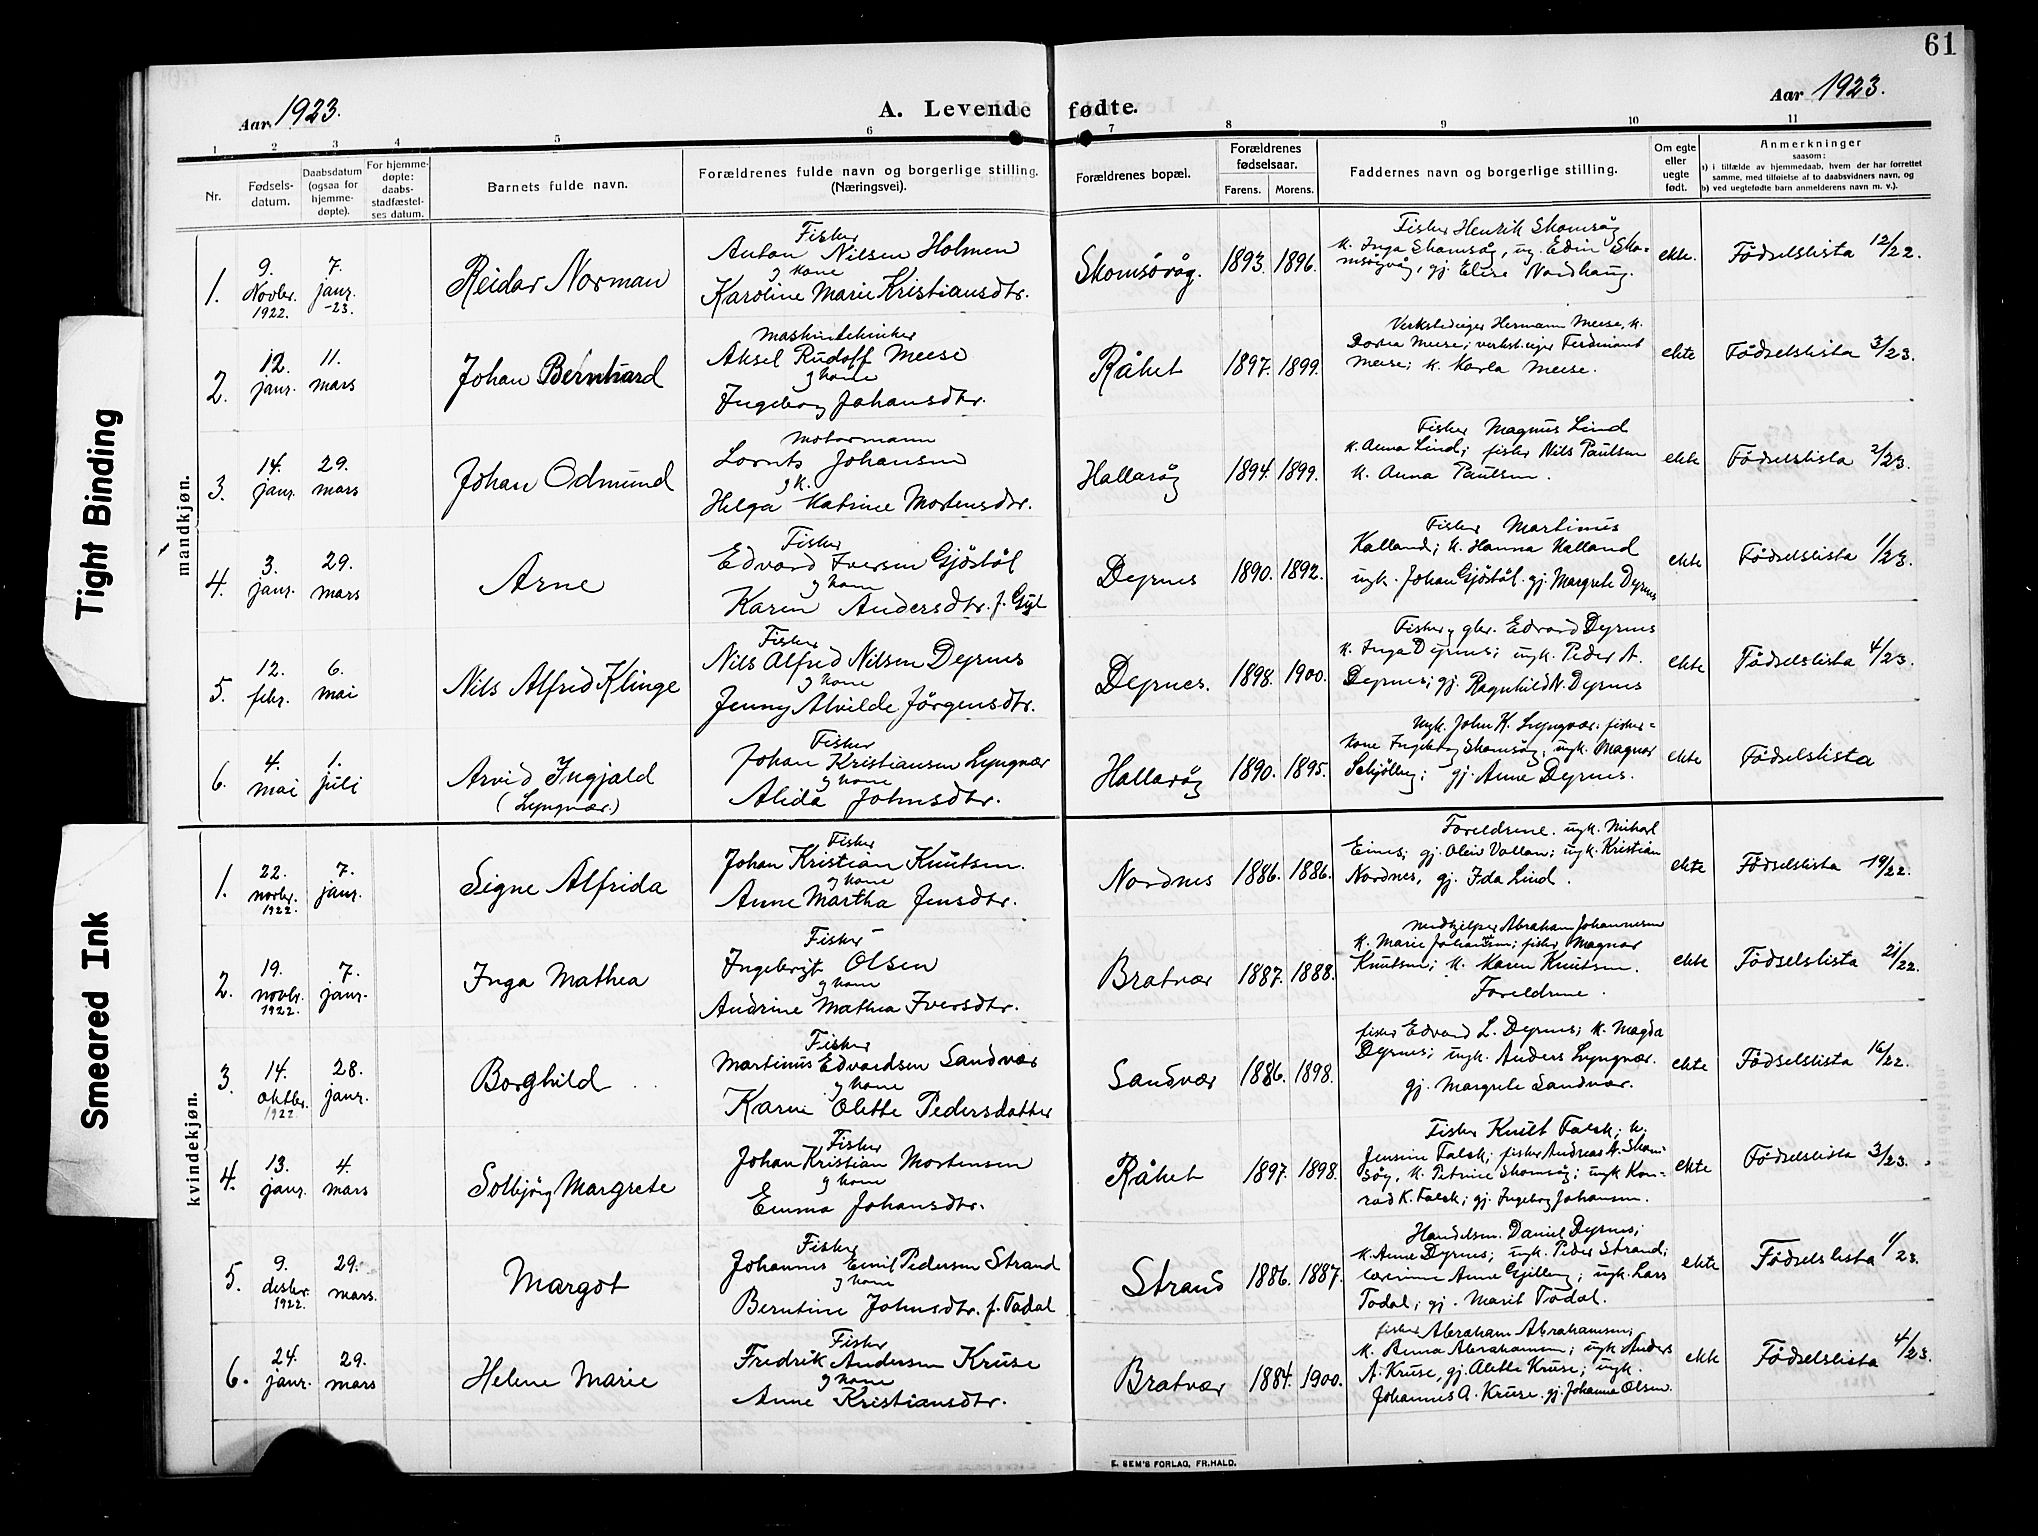 61
Aar 1923.
A. Levende fødte.
Aar 1923.
1 2 3 4 5 6 7 7 8 9 10 11
Nr.
Fødsels-
datum.
Daabsdatum
(ogsaa for
hjemme-
døpte).
For hjemme-
døpte:
daabs-
stadfæstel-
ses datum.
Barnets fulde navn.
Forældrenes fulde navn og borgerlige stilling.
(Næringsvei).
Forældrenes bopæl.
Forældrenes
fødselsaar.
Farens. Morens.
Faddernes navn og borgerlige stilling.
Om egte
eller
uegte
født.
Anmerkninger
saasom:
a) i tilfælde av hjemmedaab, hvem der har forrettet
samme, med tilføielse af to daabsvidners navn, og
b) ved uegtefødte barn anmelderens navn m. v.).
Tight Binding
Smeared Ink
mandkjøn.
1.
9.
Novbr.
1922.
7.
janr.
-23.
Reidar Norman
Fisker
Anton Nilsen Holmen
g kone
Karoline Marie Kristiansdtr.
Skomsøvåg.
1893. 1896.
Fisker Henrik Skomsøg
k. Inga Skomsøg, ug. Edin Sko-
msøgvåg, gj. Elise Nordhaug.
ekte.
Fødselslista 12/22.
2.
12.
janr.
11.
mars
Johan Bernhard
Maskintekniker
Aksel Rudolf Meese
g kone
Ingeborg Johansdtr.
Råket
1897. 1899.
Verkstedeiger Hermann Meese, k.
Dorea Meese; verkst.eiger Ferdinand
Meese; k. Karla Meese.
ekte
Fødselslista 3/23.
3.
14.
janr.
29.
mars
Johan Odmund
Motormann
Lornts Johansen
g k.
Helga Katrine Mortensdtr.
Hallarøg
1894. 1899.
Fisker Magnus Lind
k. Anna Lind; fisker Nils Paulsen
k. Anna Paulsen.
ekte
Fødselslista 2/23.
4.
3.
janr.
29.
mars
Arne
Fisker
Edvard Iversen Gjøstøl
g kone
Karen Andersdtr. f. Gyl
Dyrnes
1890. 1892.
Fisker Martinus
Kalland; k. Hanna Kalland
ugk. Johan Gjøstøl. gj. Margrete Dyrnes
ekte
Fødselslista 1/23.
5.
12.
febr.
6.
mai
Nils Alfred Klinge
Fisker
Nils Alfred Nilsen Dyrnes
g kone
Jenny Alvilde Jørgensdtr.
Dyrnes.
1898. 1900.
Fisker g gbr. Edvard Dyrnes
k. Inga Dyrnes; ugk. Peder A.
Dyrnes; gj. Ragnhild N. Dyrnes
ekte
Fødselslista 4/23.
6.
4.
mai
1.
juli
Arvid Ingjald
(Lyngvær.)
Fisker
Johan Kristiansen Lyngvær
g kone
Alida Johnsdtr.
Hallarøg
1890. 1895.
Ugk. John K. Lyngvær. fisker-
kone Ingeborg Skomsøg, ugk. Magnar
Schjølberg; gj. Anna Dyrnes.
ekte
Fødselslista
kvindekjøn.
1.
22.
novbr.
1922.
7.
janr.
Signe Alfrida
Fisker
Johan Kristian Knutsen.
g kone
Anne Martha Jensdtr.
Nordnes
1886. 1886.
Foreldrene. ugk. Mikal
Eines; gj. Oleiv Vollan; ugk. Kristian
Nordnes, gj. Ida Lind.
ekte
Fødselslista 19/22.
2.
19.
novbr.
1922.
7.
janr.
Inga Mathea
Fisker
Ingebrigt Olsen
g kone
Andrine Mathea Iversdtr.
Bratvær
1887. 1888.
Medhjelper Abraham Johannesen
k. Marie Johansen; fisker Magnar
Knutsen; k. Karen Knutsen.
Foreldrene.
ekte
Fødselslista 21/22.
3.
14.
oktbr.
1922.
28.
janr.
Borghild
Fisker
Martinus Edvardsen Sandvær
g kone
Karen Olette Pedersdatter
Sandvær
1886. 1898.
fisker Edvard L. Dyrnes; k. Magda
Dyrnes; ugk. Anders Lyngvær.
gj. Margrete Sandvær.
ekte
Fødselslista 16/22.
4.
13.
janr.
4.
mars
Solbjørg Margrete
Fisker
Johan Kristian Mortensen
g kone
Emma Johansdtr.
Råket
1897. 1898.
Fisker Knut Falsk; k.
Jensine Falsk; fisker Andreas A. Skom-
søg, k. Petrine Skomsøg; ugk Kon-
rad K. Falsk; gj. Ingeborg Johansen.
ekte
Fødselslista 3/23.
5.
9.
desbr.
1922.
29.
mars.
Margot
Fisker
Johannes Emil Pedersen Strand
g kone
Berntine Johnsdtr. f. Todal
Strand
1886. 1887.
Handelsm. Daniel Dyrnes;
k. Anne Dyrnes; ugk. Peder Strand;
lærerinne Anne Gjilberg; ugk. Lars
Todal; gj. Marit Todal.
ekte
Fødselslista 1/23.
6.
24.
janr.
29.
mars
Helene Marie
Fisker
Fredrik Andersen Kruse
g kone
Anne Kristiansdtr.
Bratvær
1884. 1900.
fisker Abraham Abrahamsen;
k. Anna Abrahamsen; ugk Anders
A. Kruse, gj. Alette Kruse; ugk.
Johannes A. Kruse. gj. Johanna Olsen.
ekte
Fødselslista 4/23.
E. SEM'S FORLAG, FR.HALD.